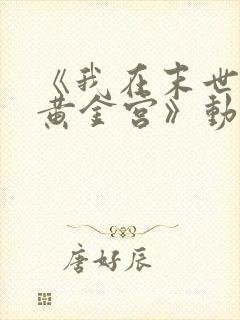 《我在末世
黄金宫》動
唐好辰